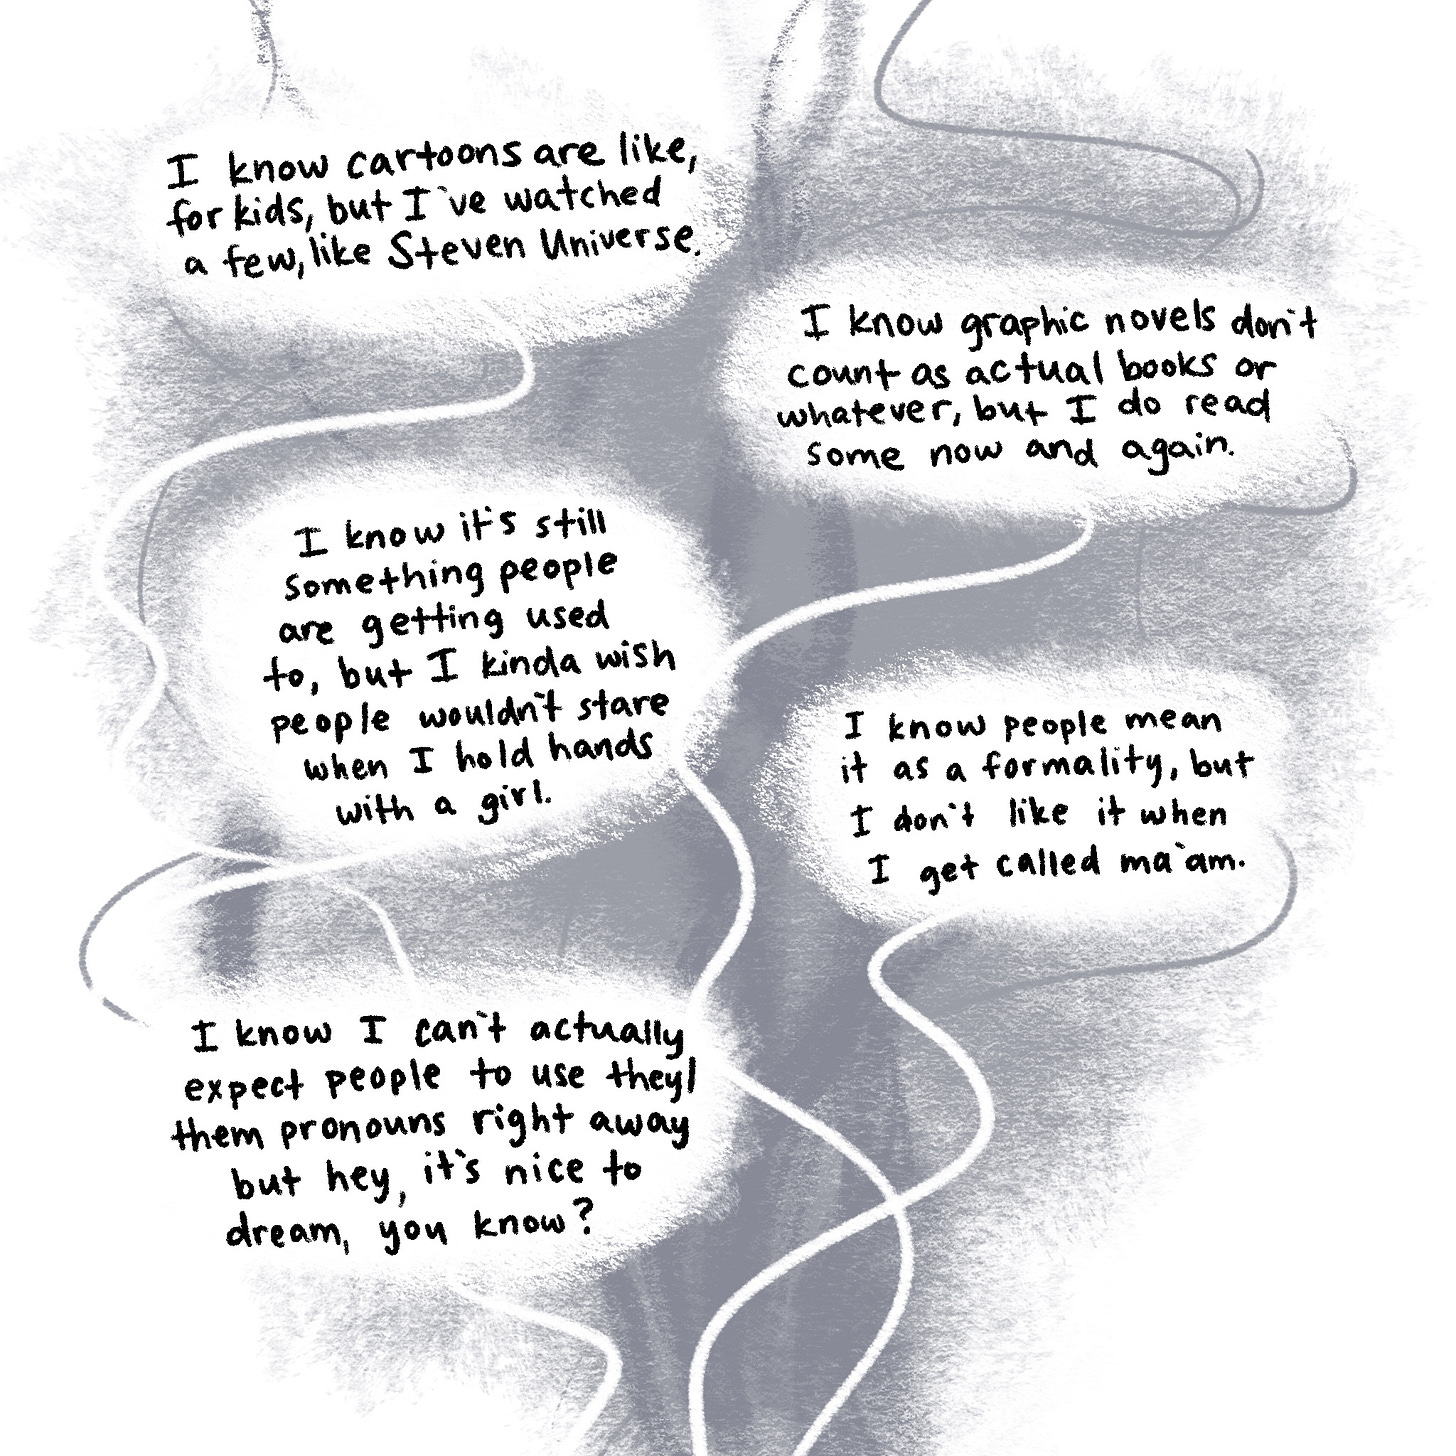 I know cartoons are like,
for kids, but I've watched
a few, like Steven Universe.
I know graphic novels don't
count as actual books or
whatever, but I do read
some now and again.
I know it's still
something people
are getting used
to, but I kinda wish
people wouldn't stare
when I hold hands
with a girl.
I know people mean
it as a formality, but
I don't like it when
I get called ma'am.
I know I can't actually
expect people to use they/
them pronouns right away
but hey, it's nice to
dream, you know?